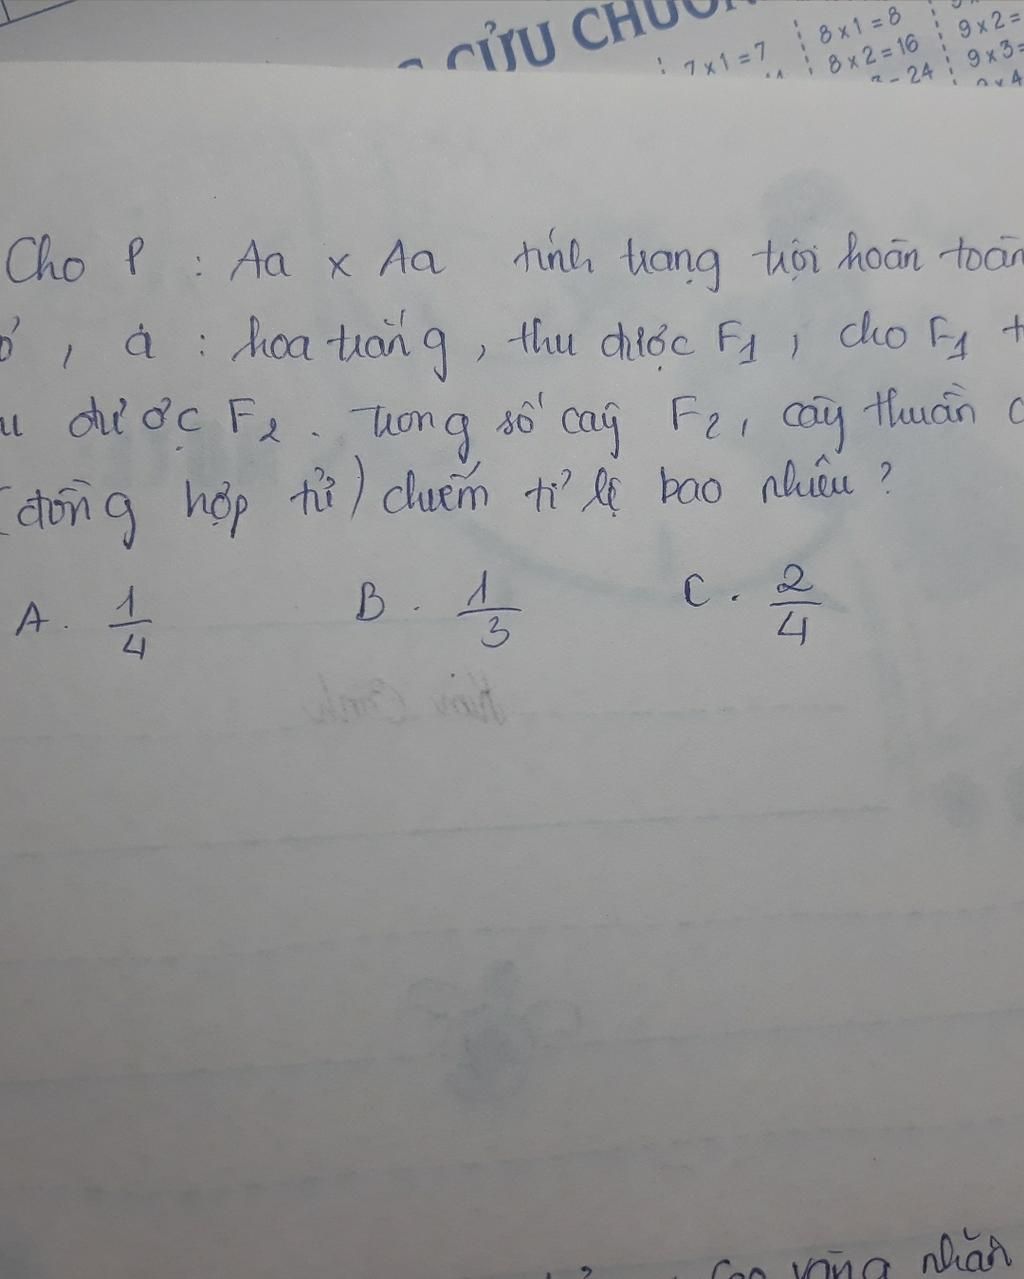 CỬU CHƯƠN
7 x 1 = 7
8 x 1 = 8
8 x 2 = 16
= 24
9 x 2 =
9 x 3 =
x 4
Cho P : Aa x Aa tính trạng trội hoàn toàn
, a : hoa trắng, thu được F1, cho F1 t
u được F2. Trong số cây F2, cây thuần c
(đồng hợp tử) chiếm tỉ lệ bao nhiêu?
A. 1/4 B. 1/3 C. 2/4
vàng nhăn